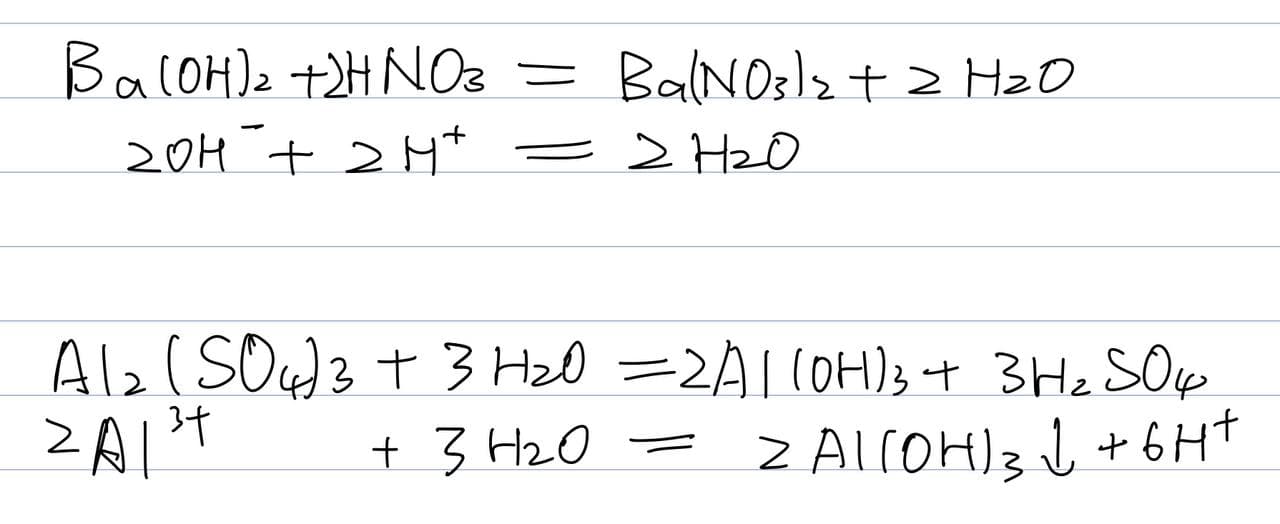 Ba(OH)₂ + 2HNO₃ = Ba(NO₃)₂ + 2H₂O
2OH⁻ + 2H⁺ = 2H₂O
Al₂(SO₄)₃ + 3H₂O = 2Al(OH)₃ + 3H₂SO₄
2Al³⁺ + 3H₂O = 2Al(OH)₃↓ + 6H⁺